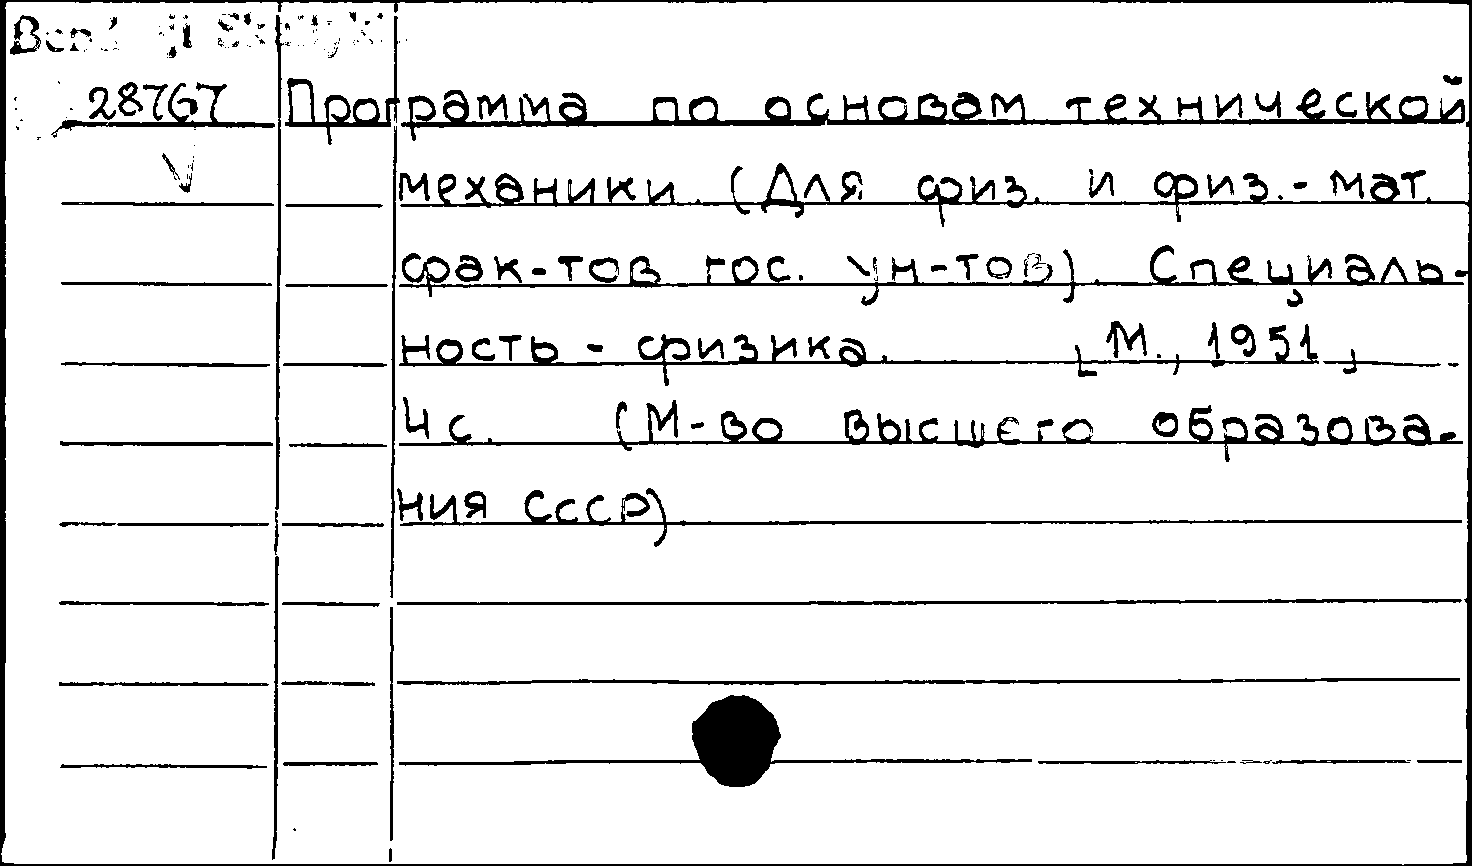 28767 Программа по основам технической
механики. (Для физ. и физ.-мат.
фак-тов гос. ун-тов). Специаль-
ность - физика. [М., 1951]
4 с. (М-во высшего образова-
ния СССР).